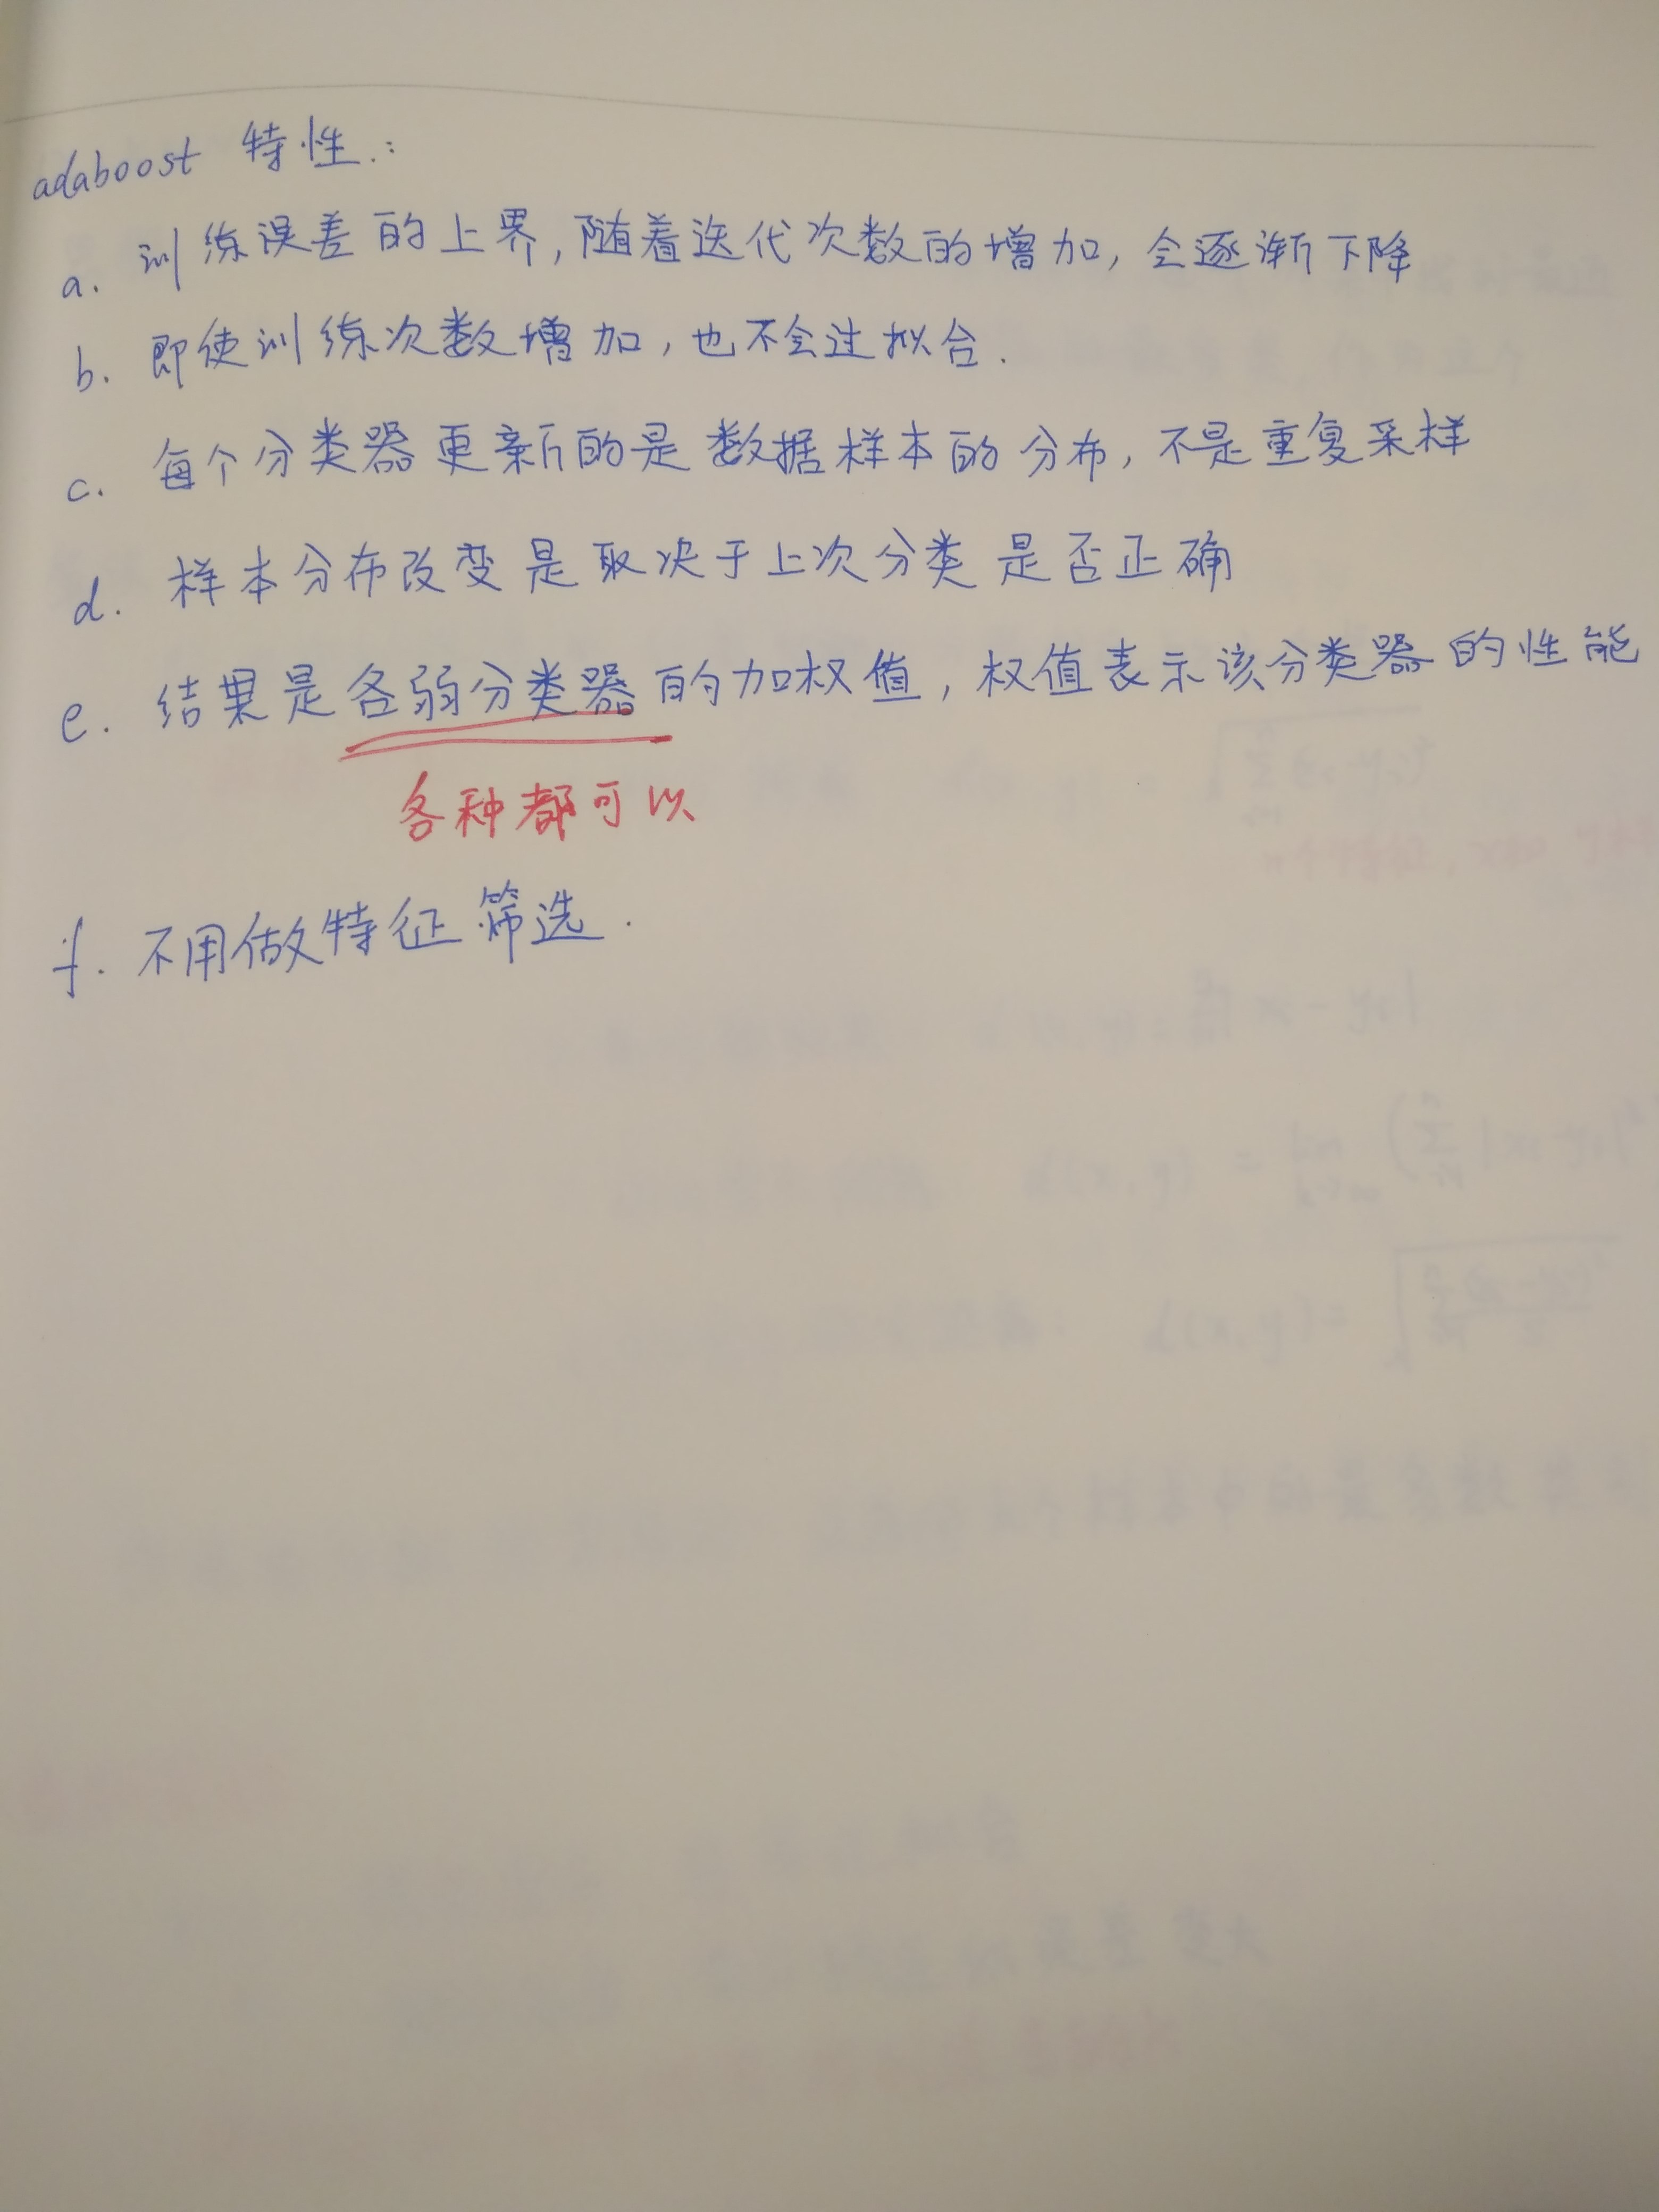 adaboost 特性.:
a. 训练误差的上界,随着迭代次数的增加,会逐渐下降
b. 即使训练次数增加,也不会过拟合.
c. 每个分类器更新的是数据样本的分布,不是重复采样
d. 样本分布改变是取决于上次分类是否正确
e. 结果是各弱分类器的加权值,权值表示该分类器的性能
各种都可以
f. 不用做特征筛选.